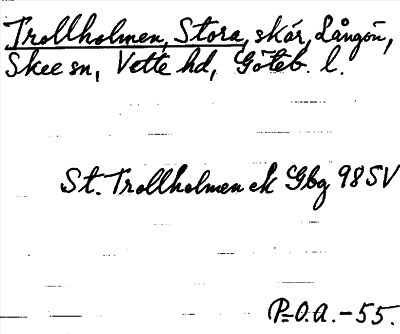 Trollholmen, Stora, skär, Långön,
Skee sn, Vette hd, Göteb. l.
St. Trollholmen ek Gbg 98 SV
P-O.A. -55.